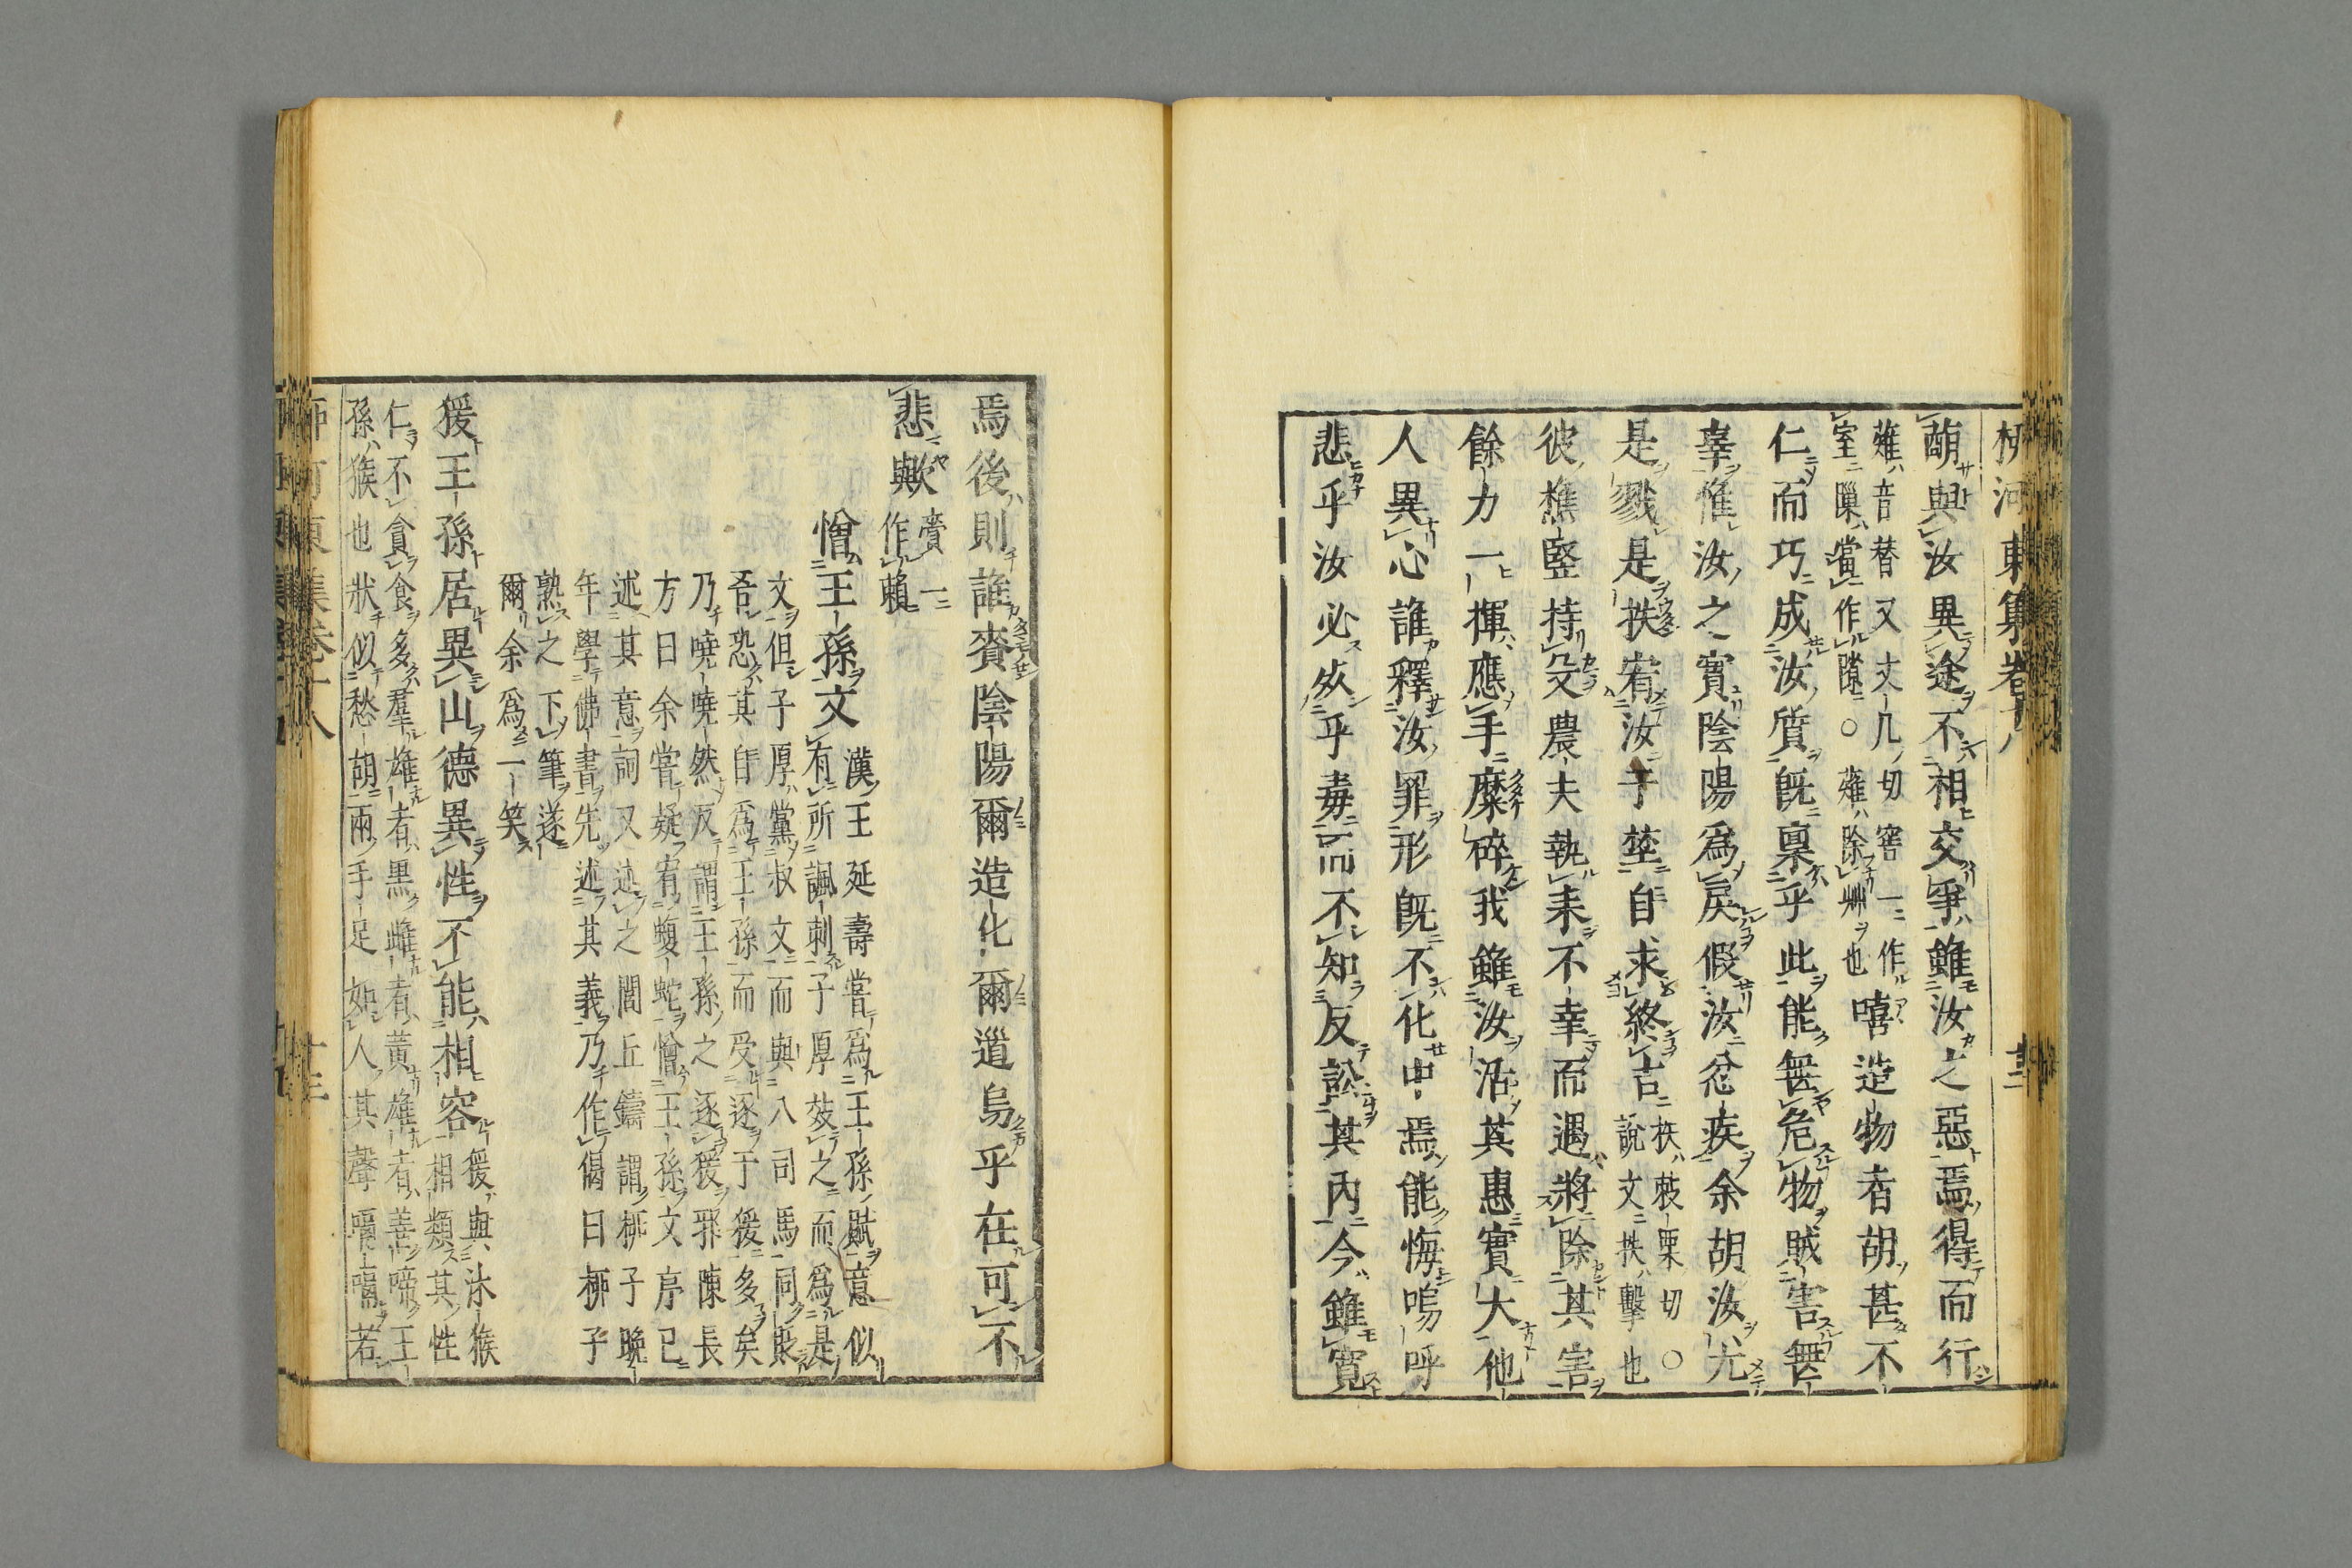 柳河東集卷十八
萠與汝異途不相交爭雖汝之惡焉得而行
薙音替又丈几切窖一作
室隟當作隙○薙除艸也
嘻造物者胡甚不
仁而巧成汝質旣稟乎此能無危物賊害無
辜惟汝之實陰陽爲戾假汝忿疾余胡汝尤
是戮是抶宥汝于埜自求終吉
抶敕栗切○
說文抶擊也
彼樵豎持芟農夫執耒不幸而遇將除其害
餘力一揮應手糜碎我雖汝活其惠實大他
人異心誰釋汝罪形旣不化中焉能悔嗚呼
悲乎汝必死乎毒而不知反訟其內今雖寛
焉後則誰賚陰陽爾造化爾道烏乎在可不
悲歟
賚一
作賴
憎王孫文
漢王延壽嘗爲王孫賦意似
有所諷刺子厚效之而爲是
文但子厚黨叔文而與八司馬同貶
吾恐其自爲王孫而受逐于猨多矣
乃曉曉然反謂王孫之逐猨邪陳長
方曰余嘗疑宥蝮蛇憎王孫文序已
述其意詞又述之閭丘鑄謂柳子晚
年學佛書先述其義乃作偈曰柳子
熟之下筆遂
爾余爲一笑
猨王孫居異山德異性不能相容
猨與沐猴
相類其性
仁不貪食多羣雄者黑雌者黃雄者善啼王
孫猴也狀似愁胡兩手足如人其聲嗝嗝若
柳河東集卷十八